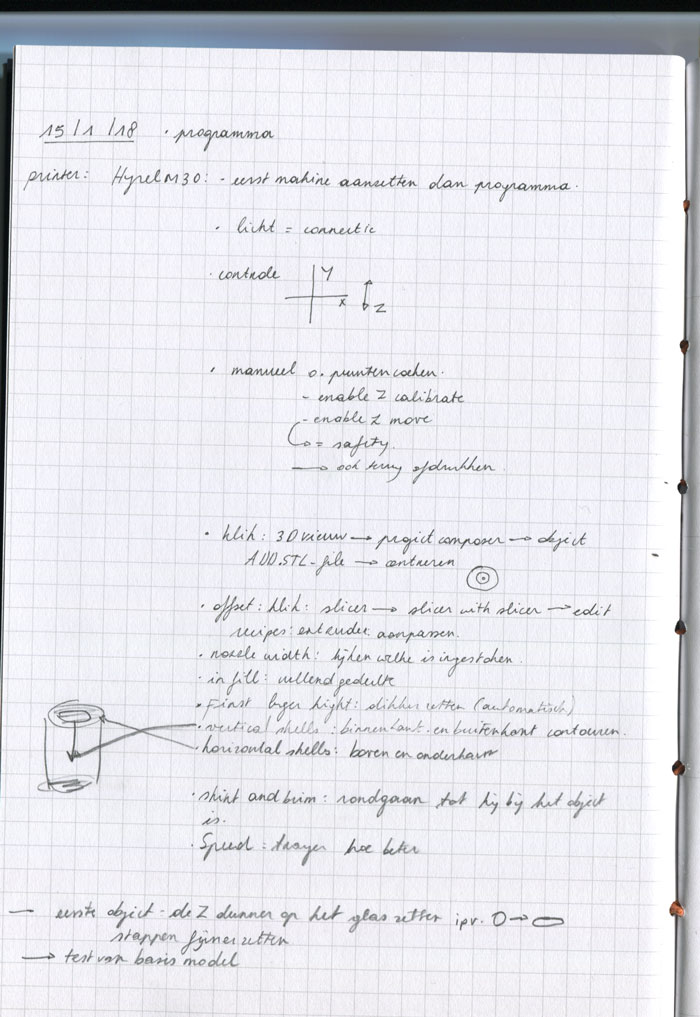 15/1/18 · programma
printer: Hyrel M30: - eerst machine aanzetten dan programma.
· licht = connectie
· controle Y
x Z
· manueel 0. punten zoeken.
- enable Z calibrate
- enable Z move
= safety.
→ ook terug afdrukken
· klik: 3D view → project composer → object
ADD.STL-file → centreren
· offset: klik: slicer → slicer with slicer → edit
recipes: extruder aanpassen.
· nozzle width: kijken welke is ingestoken.
· infill: vullend gedeelte
· First layer hight: dikker zetten (automatisch)
· vertical shells: binnenkant en buitenkant contouren.
· horizontal shells: boven en onderkant
· skirt and brim: rondgaan tot hij bij het object
is.
· Speed: trager hoe beter
— eerste object: de Z dunner op het glas zetten ipv. O → O
stappen fijner zetten
→ test van basis model